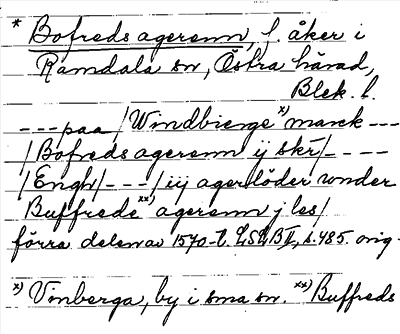 * Bofreds agerenn, f. åker i
Ramdala sn, Östra härad,
Blek. l.
---paa /Windbierge x) marck ---
/Bofreds agerenn ij skr/- - --
/Engh/---/iij agerlöder wnder
Buffrede xx) agerenn j les/
förra delen av 1570-t. LSLB II, s. 485. orig.
x) Vinberga, by i sma sn. xx) Buffreds